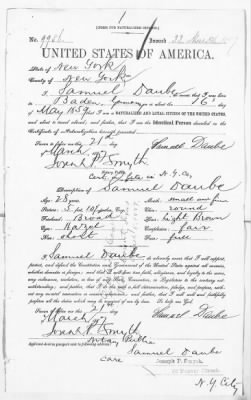 [FORM FOR NATURALIZED CITIZEN.]
No. 9966 Issued 22 Mar
UNITED STATES OF AMERICA.
State of New York
County of New York
I Samuel Daube
Baden, Germany on or about the 16
May 1859; that I am a NATURALIZED AND LOYAL CITIZEN OF THE UNITED STATES,
and about to travel abroad; and further, that I am the Identical Person described in the
Certificate of Naturalization herewith presented.
Sworn to before me this 21 day
of March 187 Samuel Daube
Joseph P. Smyth
Notary Public
N.Y. Co.
Description of Samuel Daube
Age: 28 years
Stature: 5 feet
Forehead: Broad
Eyes: Hazel
Nose: short
Mouth: small
Chin: round
Hair: Light Brown
Complexion: fair
Face: full
I Samuel Daube do solemnly swear that I will support,
protect, and defend the Constitution and Government of the United States against all enemies,
whether domestic or foreign; and that I will bear true faith, allegiance, and loyalty to the same,
any ordinance, resolution, or law of any State, Convention, or Legislature to the contrary notwithstanding;
and further, that I do this with a full determination, pledge, and purpose, without
any mental reservation or evasion whatsoever; and further, that I will well and faithfully
perform all the duties which may be required of me by law. So help me God.
Sworn to before me this 21 day
of March 187 Samuel Daube
Joseph P. Smyth
Notary Public
Applicant desires passport sent to following address:
Samuel Daube
care Joseph P. Smyth
N.Y. City